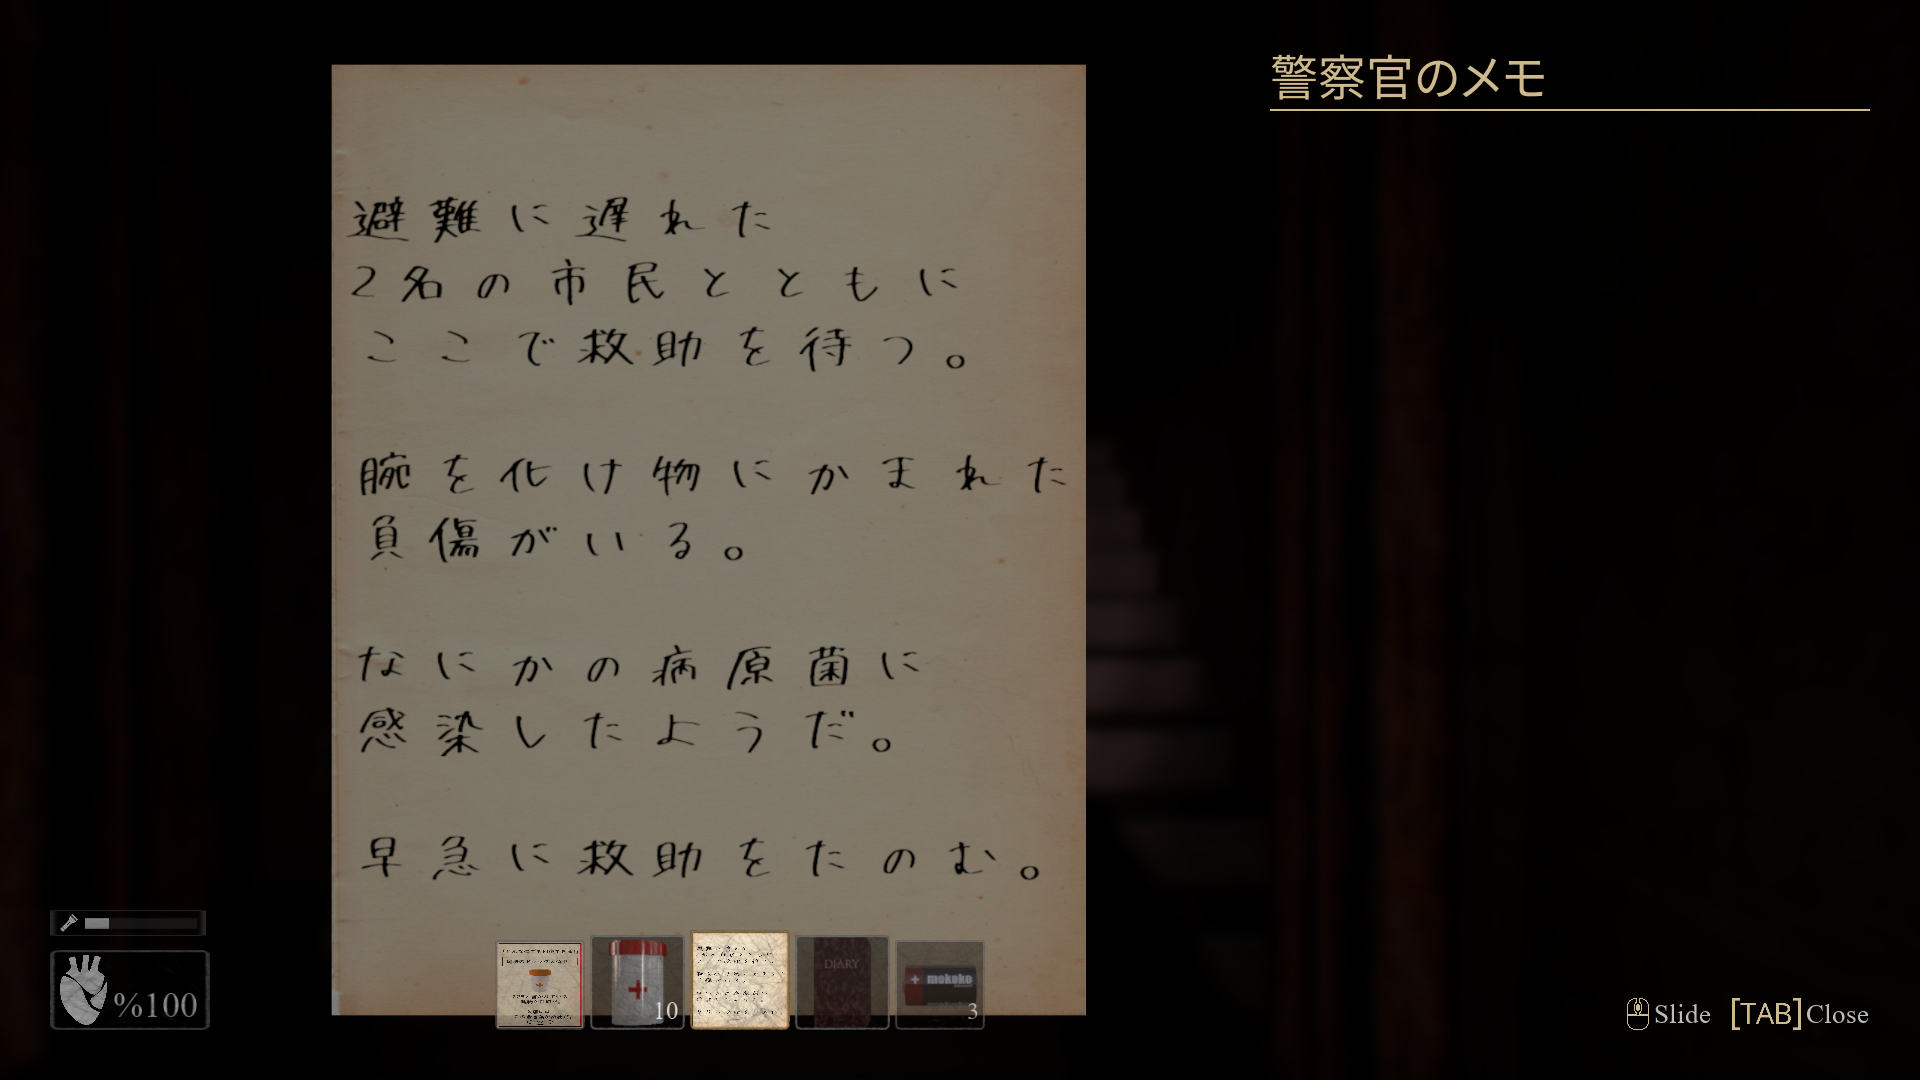 警察官のメモ
避難に遅れた
2名の市民とともに
ここで救助を待つ。
腕を化け物にかまれた
負傷がいる。
なにかの病原菌に
感染したようだ。
早急に救助をたのむ。
%100
10
DIARY
mokoko
3
Slide [TAB]Close